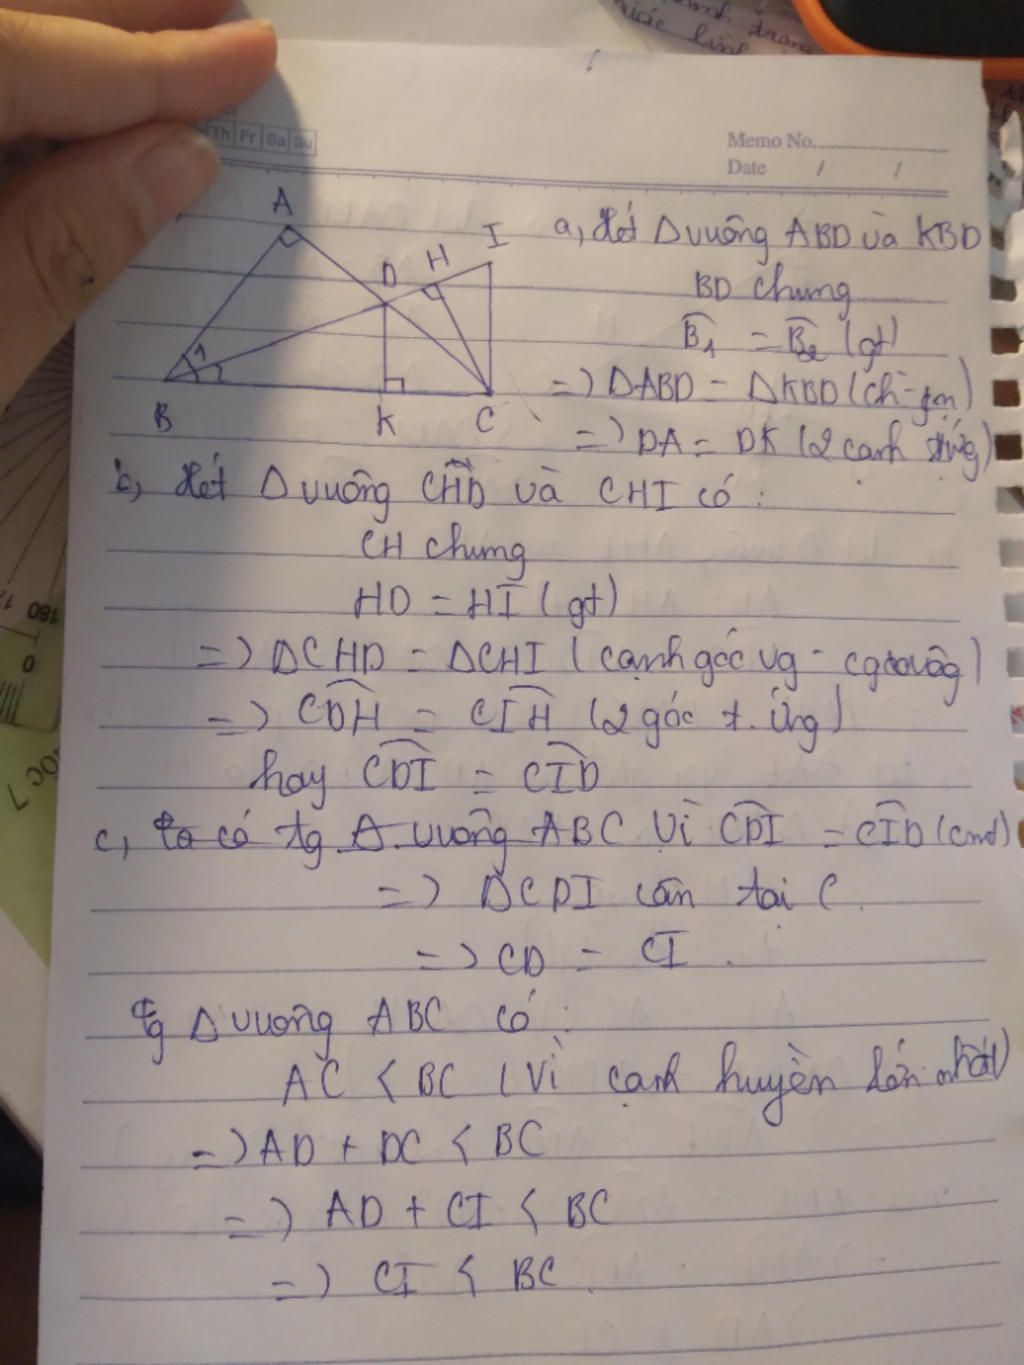 Th Fr Sa Su
Memo No.
Date / /
A
D H I
1
B K C
a, Xét Δ vuông ABD và KBD
BD chung
B₁ = B₂ (gt)
=) ΔABD = ΔKBD (ch-gn)
=) DA = DK (2 cạnh t/ứng)
b, Xét Δ vuông CHD và CHI có :
CH chung
HD = HI (gt)
=) ΔCHD = ΔCHI (cạnh góc vg -
=) CDH = CIH (2 góc t. ứng)
hay CDI = CID
c, ta có tg Δ vuông ABC Vì CDI = CID (cmt)
=) ΔCDI cân tại C
=) CD = CI .
tg Δ vuông ABC có :
AC < BC (Vì cạnh huyền lớn nhất)
=) AD + DC < BC
=) AD + CI < BC
=) CI < BC.
180
0